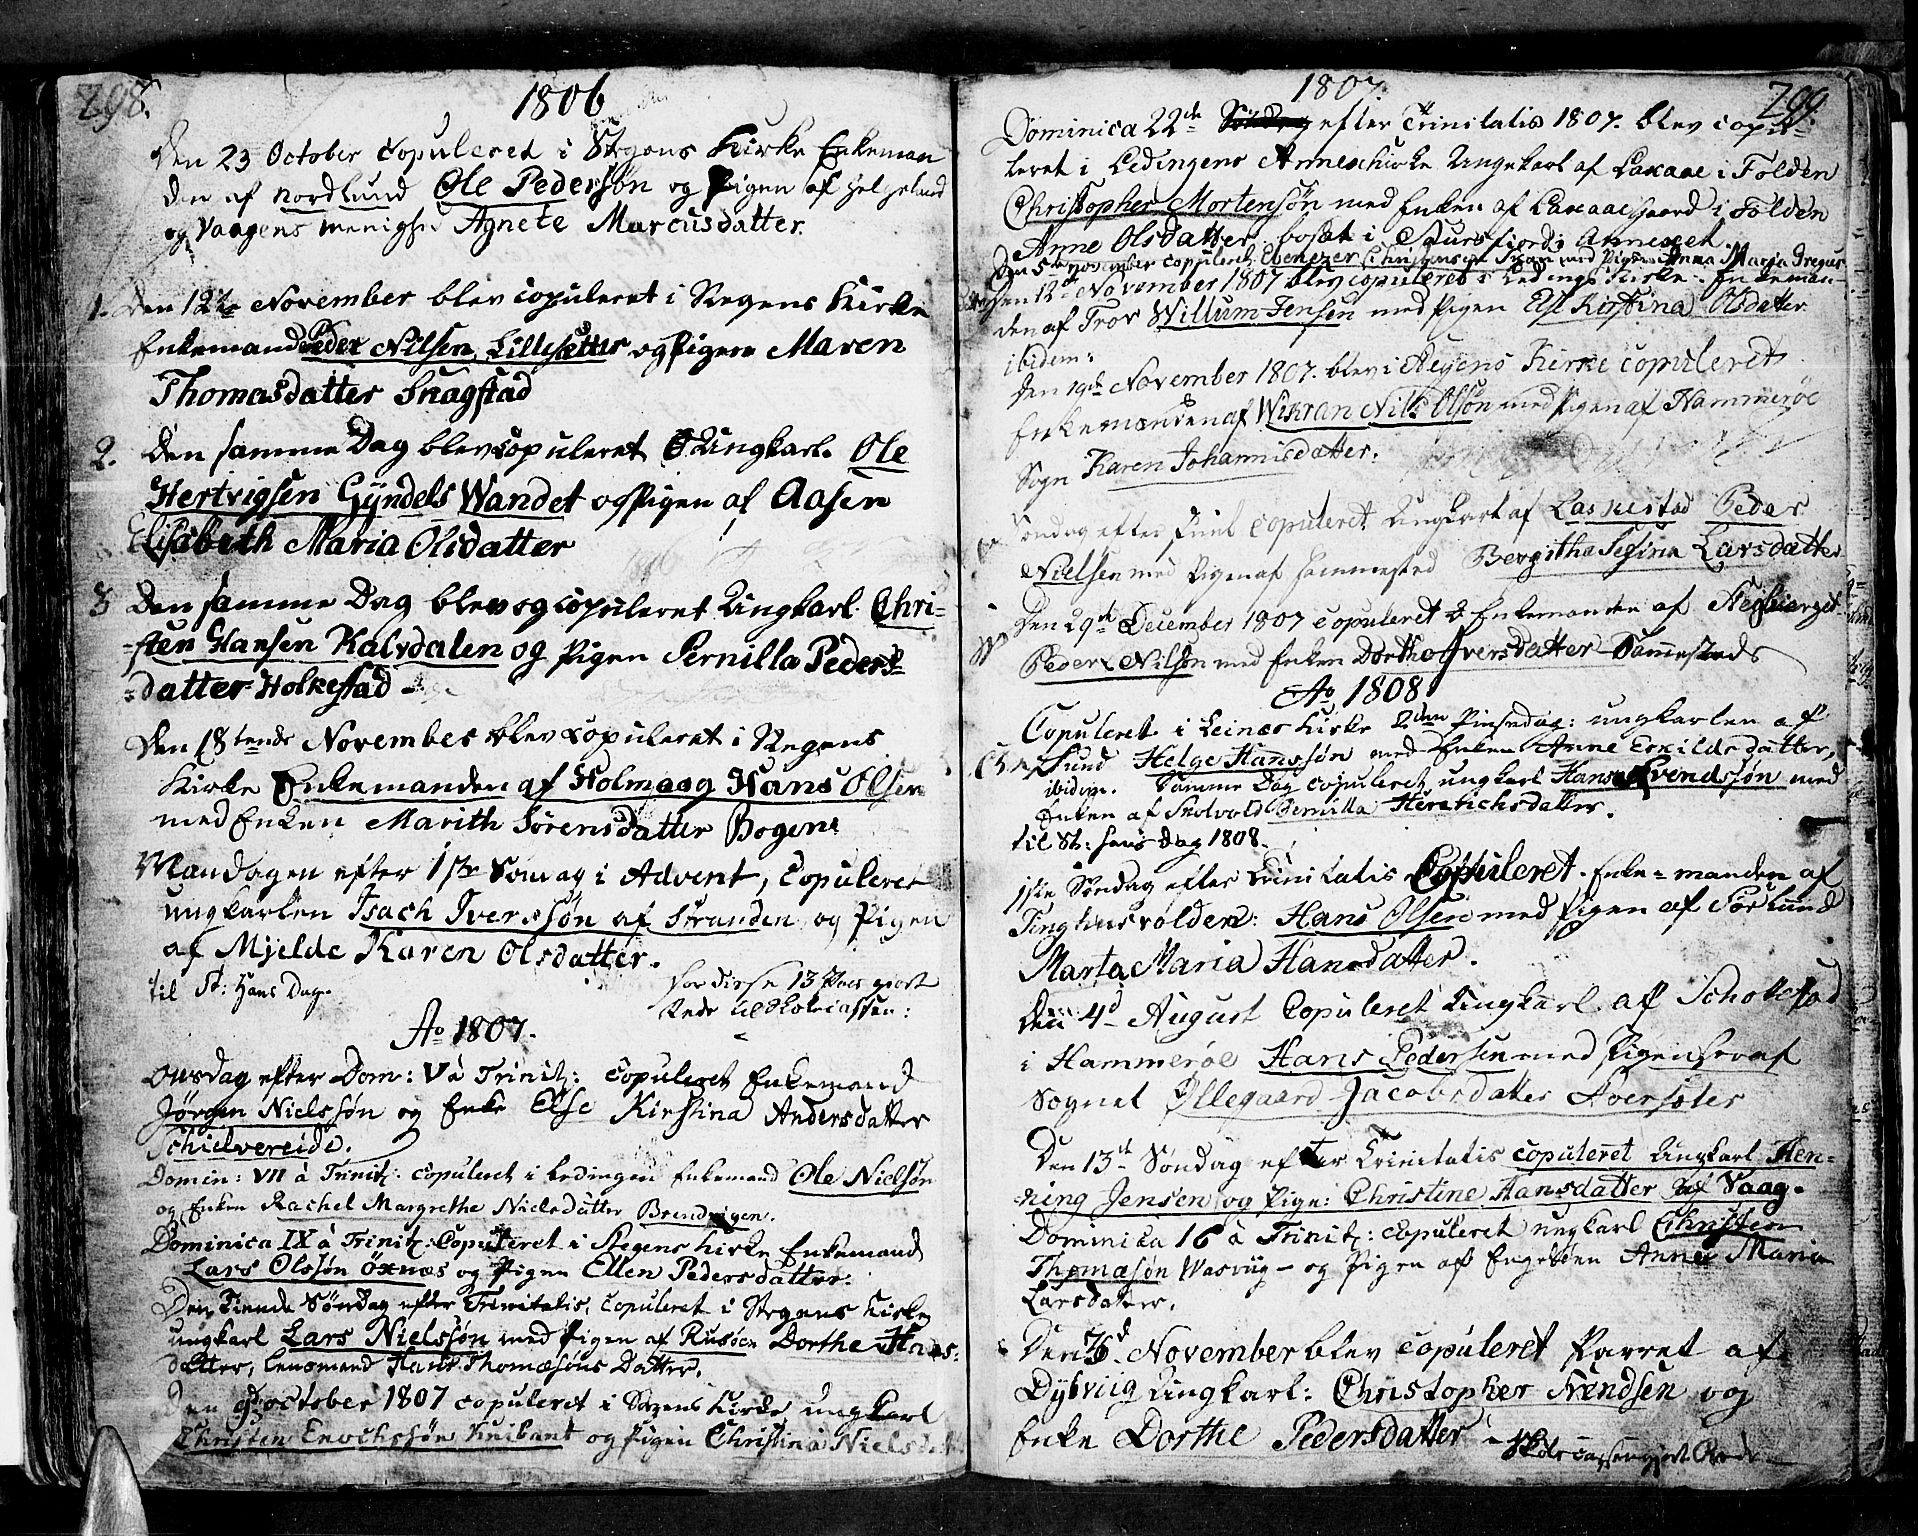 298.
1806
Den 23 October Copuleret i Stegens Kirke Enkeman
den af Nordlund Ole Pedersøn og Pigen af Helgeland
og Vaagens menighd Agnete Marcusdatter.
1. Den 12te November blev copuleret i Stegens Kirke
Enkemand Peder Nilsen Lillesætter og Pigen Maren
Thomasdatter Skagstad
2. Den samme Dag blev copuleret Ungkarl. Ole
Hertvigsen Gÿndels Wandet og Pigen af Aasen
Elisabeth Maria Olsdatter
3 Den samme Dag blev og copuleret Ungkarl. Chri-
-sten Hansen Kalvdalen og Pigen Pernilla Peders-
-datter Holkestad -
Den 18tende November blev Copuleret i Stegens
Kirke Enkemanden af Holmaag Hans Olsen
med Enken Marith Sørensdatter Bogen
Mandagen efter 1ste Søndag i Advent, Copuleret
ungkarlen Isach Iverssøn af Stranden og Pigen
af Mjelde Karen Olsdatter.
til St: Hans Dag.
for disse 13 Par giort
Rede til Skolecassen:
Ao 1807.
Onsdag efter Dom: V à Trinit: Copuleret Enkemand
Jørgen Nielssøn og Enke Else Kirstina Andersdatter
Schielvereide.
Domin: VII à Trinit: copuleret i Lødingen Enkemand Ole Nielsøn
og Enken Rachel Margrethe Nielsdatter Brendvigen.
Dominica IX à Trinit: Copuleret i Stegens Kirke Enkemand
Lars Olssøn Öxnæs og Pigen Ellen Pedersdatter.
Den Tiende Søndag efter Trinitatis, Copuleret i Stegens Kirke
ungkarl Lars Nielssøn med Pigen af Rusöen Dorthe Hans-
datter, Lensmand Hans Thomæsøns Datter.
Den 9de October 1807 copuleret i Stegens Kirke ungkarl
Christen Enochssøn Knibant og Pigen Christina Nielsdatt
299.
1807.
Dominica 22de efter Trinitatis 1807. blev copu-
leret i Ledingens Annexkirke Ungekarl af Laxaae i Folden
Christopher Mortensøn med Enken af Laxaae gaard i Folden
Anne Olsdatter, bosat i Saursfiord i Annexet.
Den 5te November copuleret Ebenezer Christensen med Pigen Anna Maria Dregus
Den 12te November 1807 blev copuleret i Ledings Kirke. Enkeman-
den af Trov Willum Jensen med Pigen Else Kirstina Olsdatter
ibidem:
Den 19de November 1807. blev i Stegens Kirke copuleret
Enkemanden af Wikran Nils Olsøn med Pigen af Hammerøe
Sogn Karen Johannisdatter.
Søndag efter copuleret Ungkarl af Laskestad Peder
Nielsen med Pigen af sammested Bergitha Sefina Larsdatter
Den 29de December 1807 copuleret Enkemanden af
Peder Nilsøn med Enken Dorthe Iversdatter Sammesteds
Ao 1808
Copuleret i Leines Kirke 2den Pinsedag: ungkarlen af
Sund Helge Hanssøn med Enken Anne Eskildsdatter,
ibidem. Samme Dag copuleret ungkarl Hans Svendsøn med
Enken af Skotvold Pernilla Henrichsdatter.
til St: Hans Dag 1808.
1ste Søndag efter Trinitatis Copuleret. Enke-manden af
Tinghusvolden: Hans Olsen med Pigen af Sørlund
Marta Maria Hansdatter.
Den 4d August Copuleret Ungkarl af Schotstad
i Hammerøe Hans Pedersen med Pigen her af
Sognet Øllegaard Jacobsdatter
Den 13de Søndag efter Trinitatis copuleret Ungkarl Hen-
-ning Jensen og Pige: Christine Hansdatter af Vaag.
Dominica 16 à Trinit: Copuleret ungkarl Christen
Thomæsøn - og Pigen af Engeløen Anne Maria
Larsdatter.
Den November blev copuleret Parret af
Dÿbviig Ungkarl: Christopher Svendsen og
Enke Dorthe Pedersdatter -
Skolecassen giort Rede